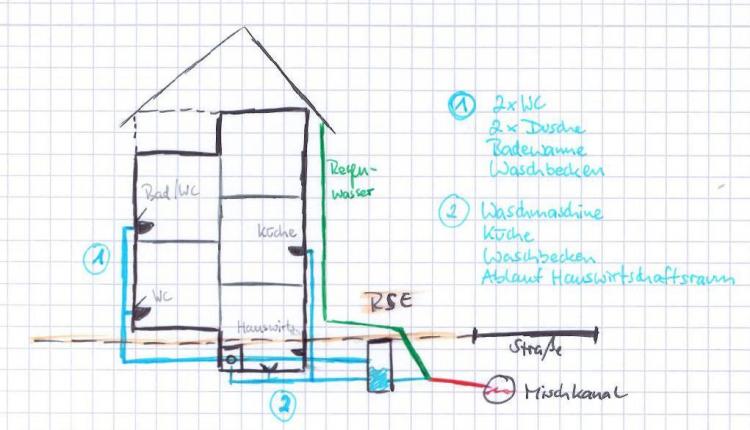 1 2x WC
2x Dusche
Badewanne
Waschbecken
Regen-
wasser
Bad/WC
2 Waschmaschine
Küche
Küche
Waschbecken
1
Ablauf Hauswirtschaftsraum
WC
RSE
Hauswirts.
Straße
2
Mischkanal